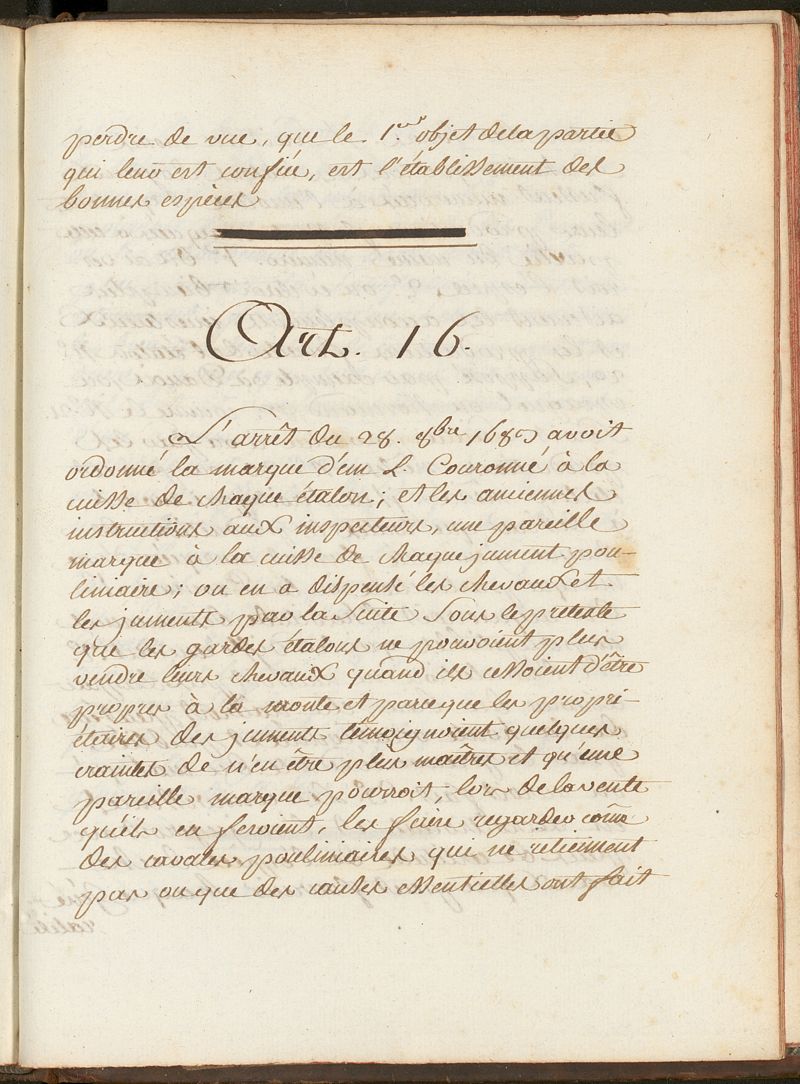 perdre de vue, que le 1.er objet de la partie
qui leur est confiée, est l'établissement des
bonnes espèces
Art. 16.
L'arrêt du 28. 8bre 1683 avoit
ordonné la marque d'un L Couronné à la
cuisse de chaque étalon; et les anciennes
instructions aux inspecteurs, une pareille
marque à la cuisse de chaque jument pou-
liniaire; on en a dispensé les chevaux et
les juments par la Suite Sous le pretexte
que les gardes étalons ne pouvoient plus
vendre leurs chevaux quand ils cessoient d'être
propres à la monte et parceque les propri-
étaires des juments témoignoient quelques
craintes de n'en être plus maîtres et qu'une
pareille marque pourroit, lors de la vente
qu'ils en feroient, les faire regarder come
des cavales pouliniaires qui ne retiennent
pas ou que des causes essentielles ont fait